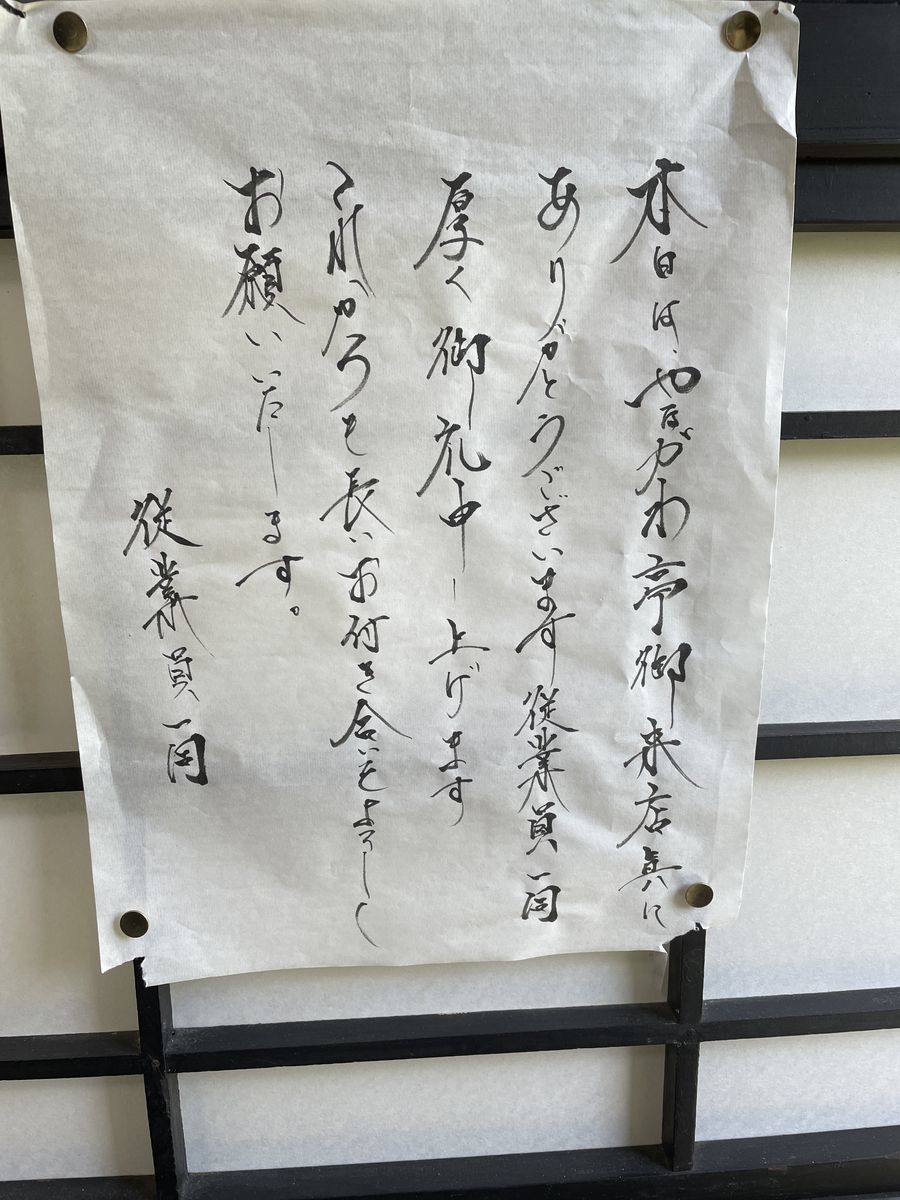 本日は、やながわ亭御来店真に
ありがとうございます従業員一同
厚く御礼申し上げます
これからも長いお付き合いをよろしく
お願いいたします。
従業員一同